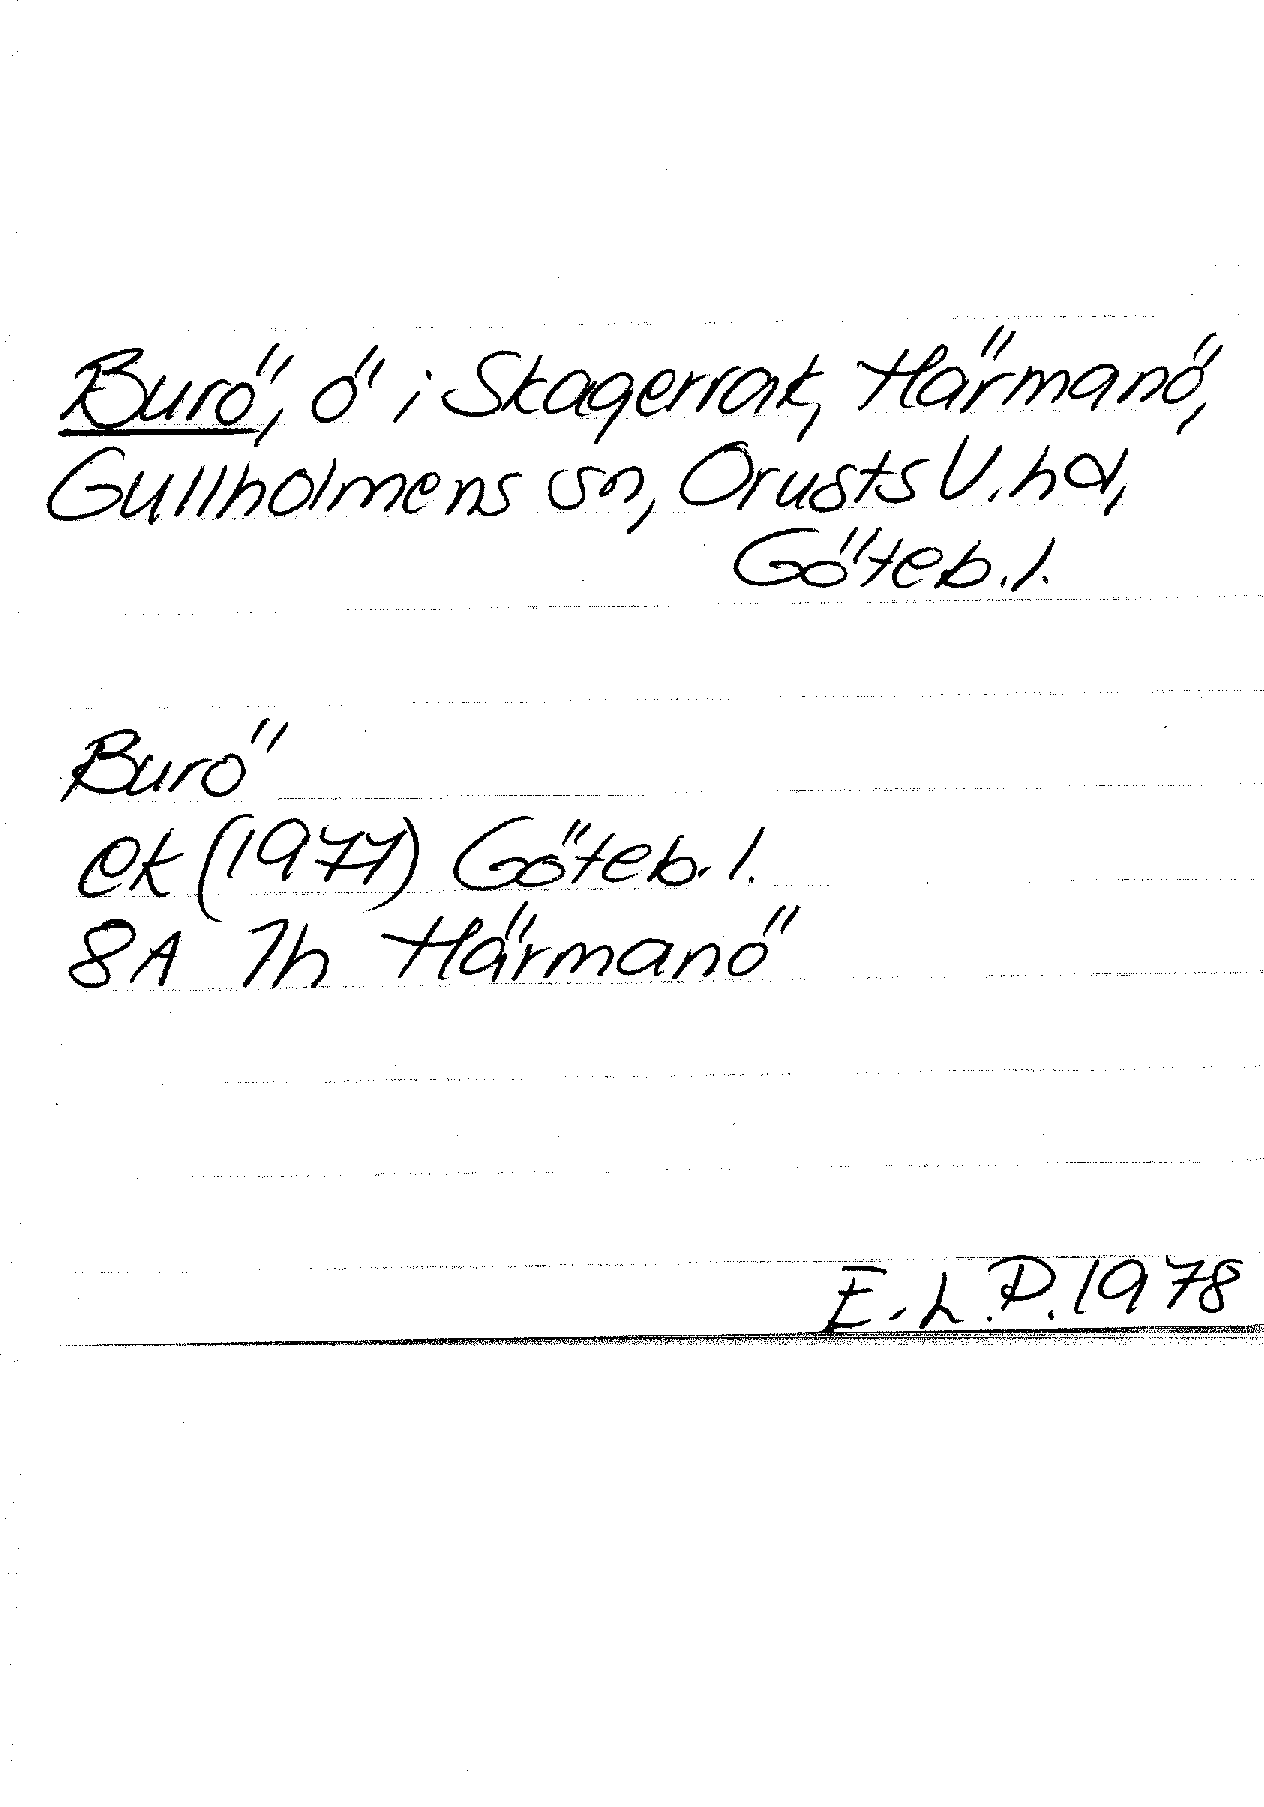 Burö, ö i Skagerrak, Härmanö,
Gullholmens sn, Orusts V. hd,
Göteb. l.
Burö
ek (1977) Göteb. l.
8A 7h Härmanö
E.L.P. 1978